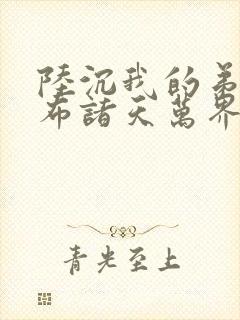 陸沉我的弟
布諸天萬界
青光至上